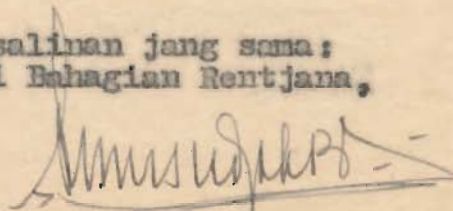 salinan jang sama:
i Bahagian Rentjana,